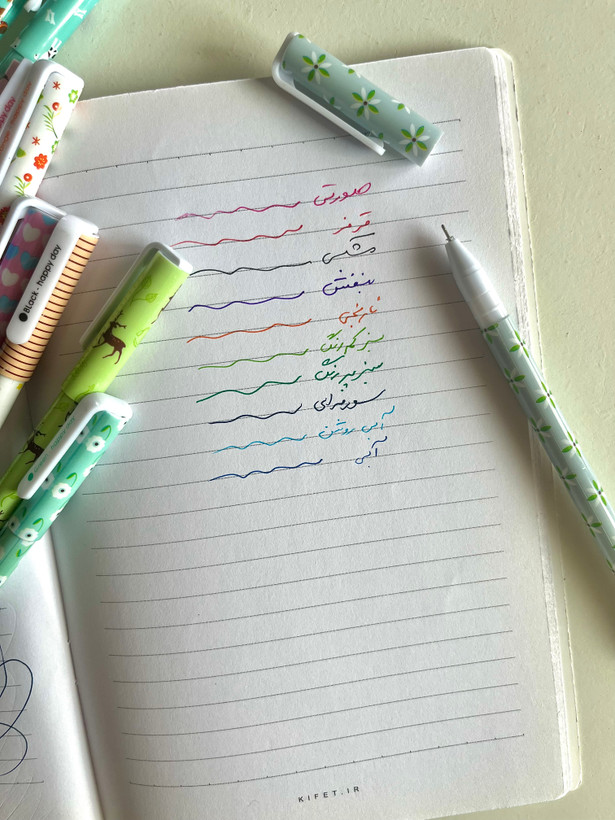 صورتی
قرمز
مشکی
بنفش
نارنجی
سبز کم رنگ
سبز پر رنگ
سورمه‌ای
آبی روشن
آبی
Black - happy day
KIFET.IR